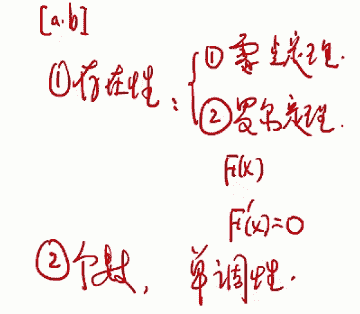 [a.b]
①存在性：①零点定理.
②罗尔定理.
F(x)
F'(x)=0
②个数，单调性.